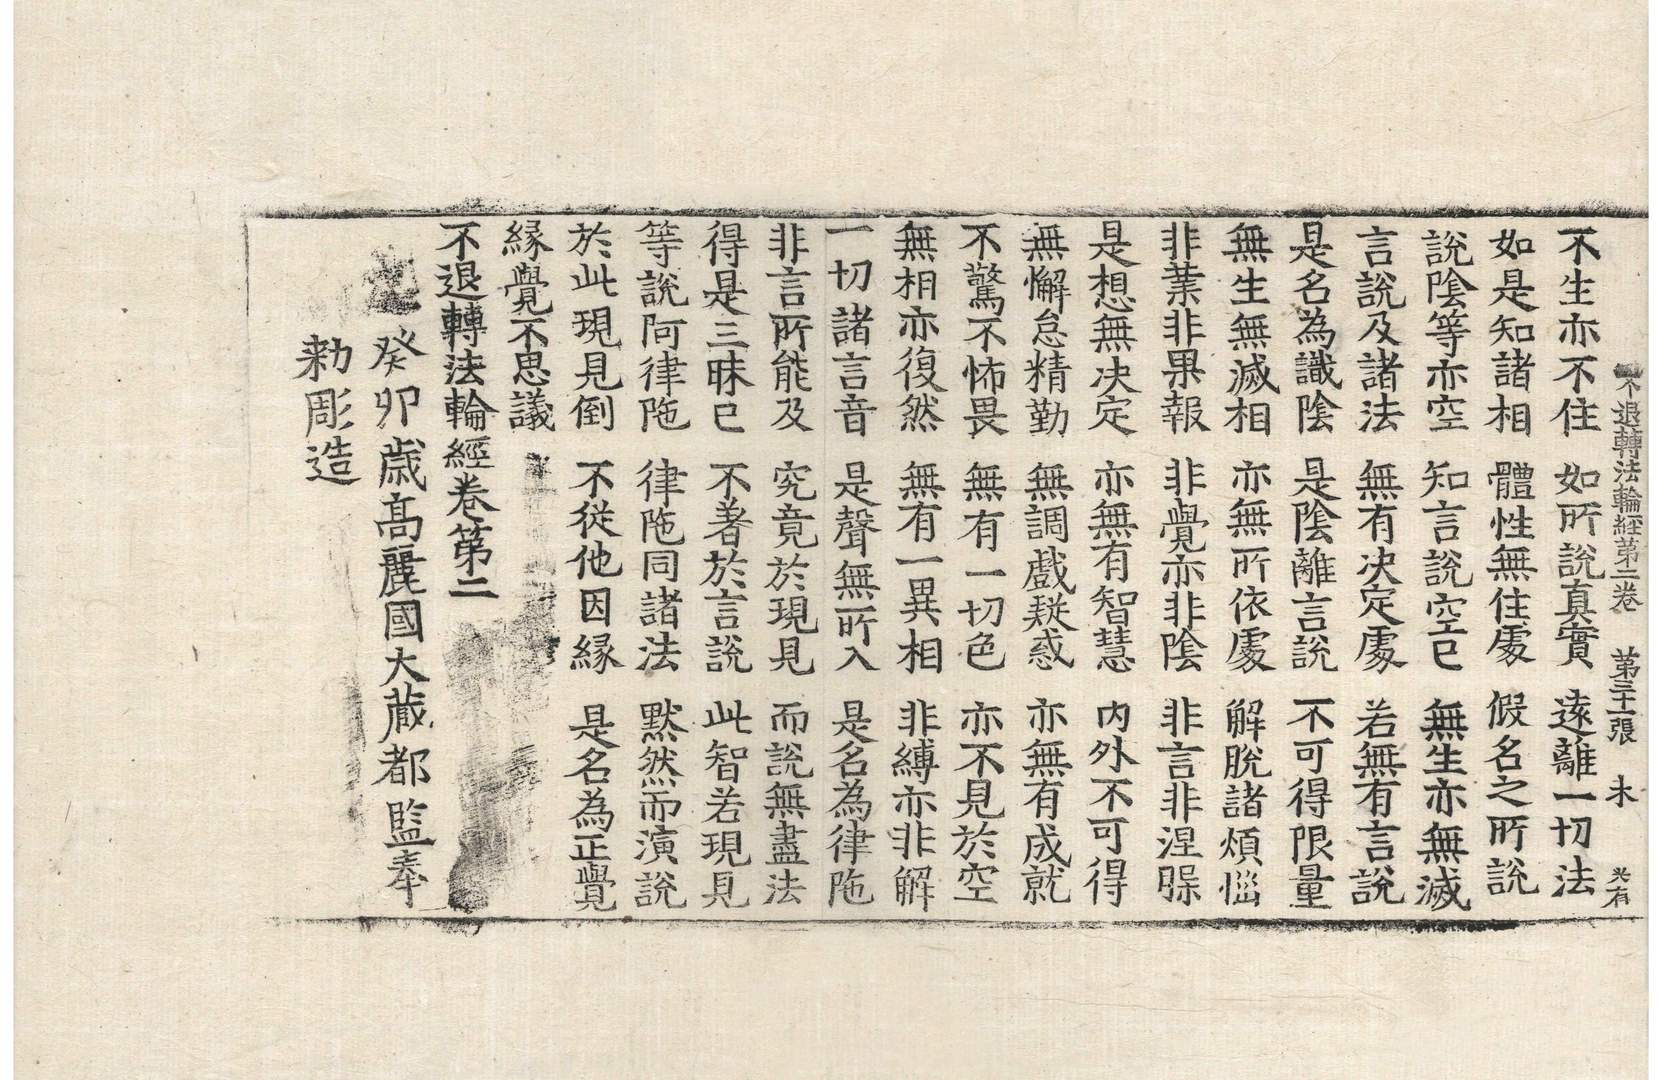 不退轉法輪經第二卷 第三十二張 未
不生亦不住 如所說真實 遠離一切法
如是知諸相 體性無住處 假名之所說
說陰等亦空 知言說空已 無生亦無滅
言說及諸法 無有决定處 若無有言說
是名為識陰 是陰離言說 不可得限量
無生無滅相 亦無所依處 解脫諸煩惱
非業非果報 非覺亦非陰 非言非涅槃
是想無决定 亦無有智慧 內外不可得
無懈怠精勤 無調戲疑惑 亦無有成就
不驚不怖畏 無有一切色 亦不見於空
無相亦復然 無有一異相 非縛亦非解
一切諸言音 是聲無所入 是名為律陁
非言所能及 究竟於現見 而說無盡法
得是三昧已 不著於言說 此智若現見
等說阿律陁 律陁同諸法 默然而演說
於此現見倒 不從他因緣 是名為正覺
緣覺不思議
不退轉法輪經卷第二
癸卯歲高麗國大藏都監奉
勅彫造